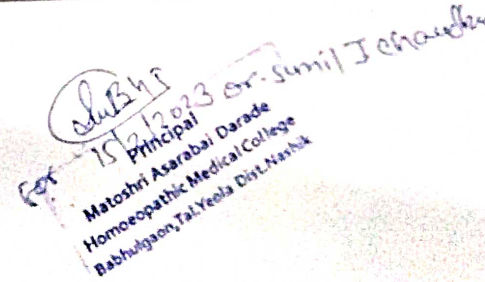 For 15/2/2023 Dr. Sunil J Chaudhari
Principal
Matoshri Asarabai Darade
Homoeopathic Medical College
Babhulgaon,Tal.Yeola Dist.Nashik